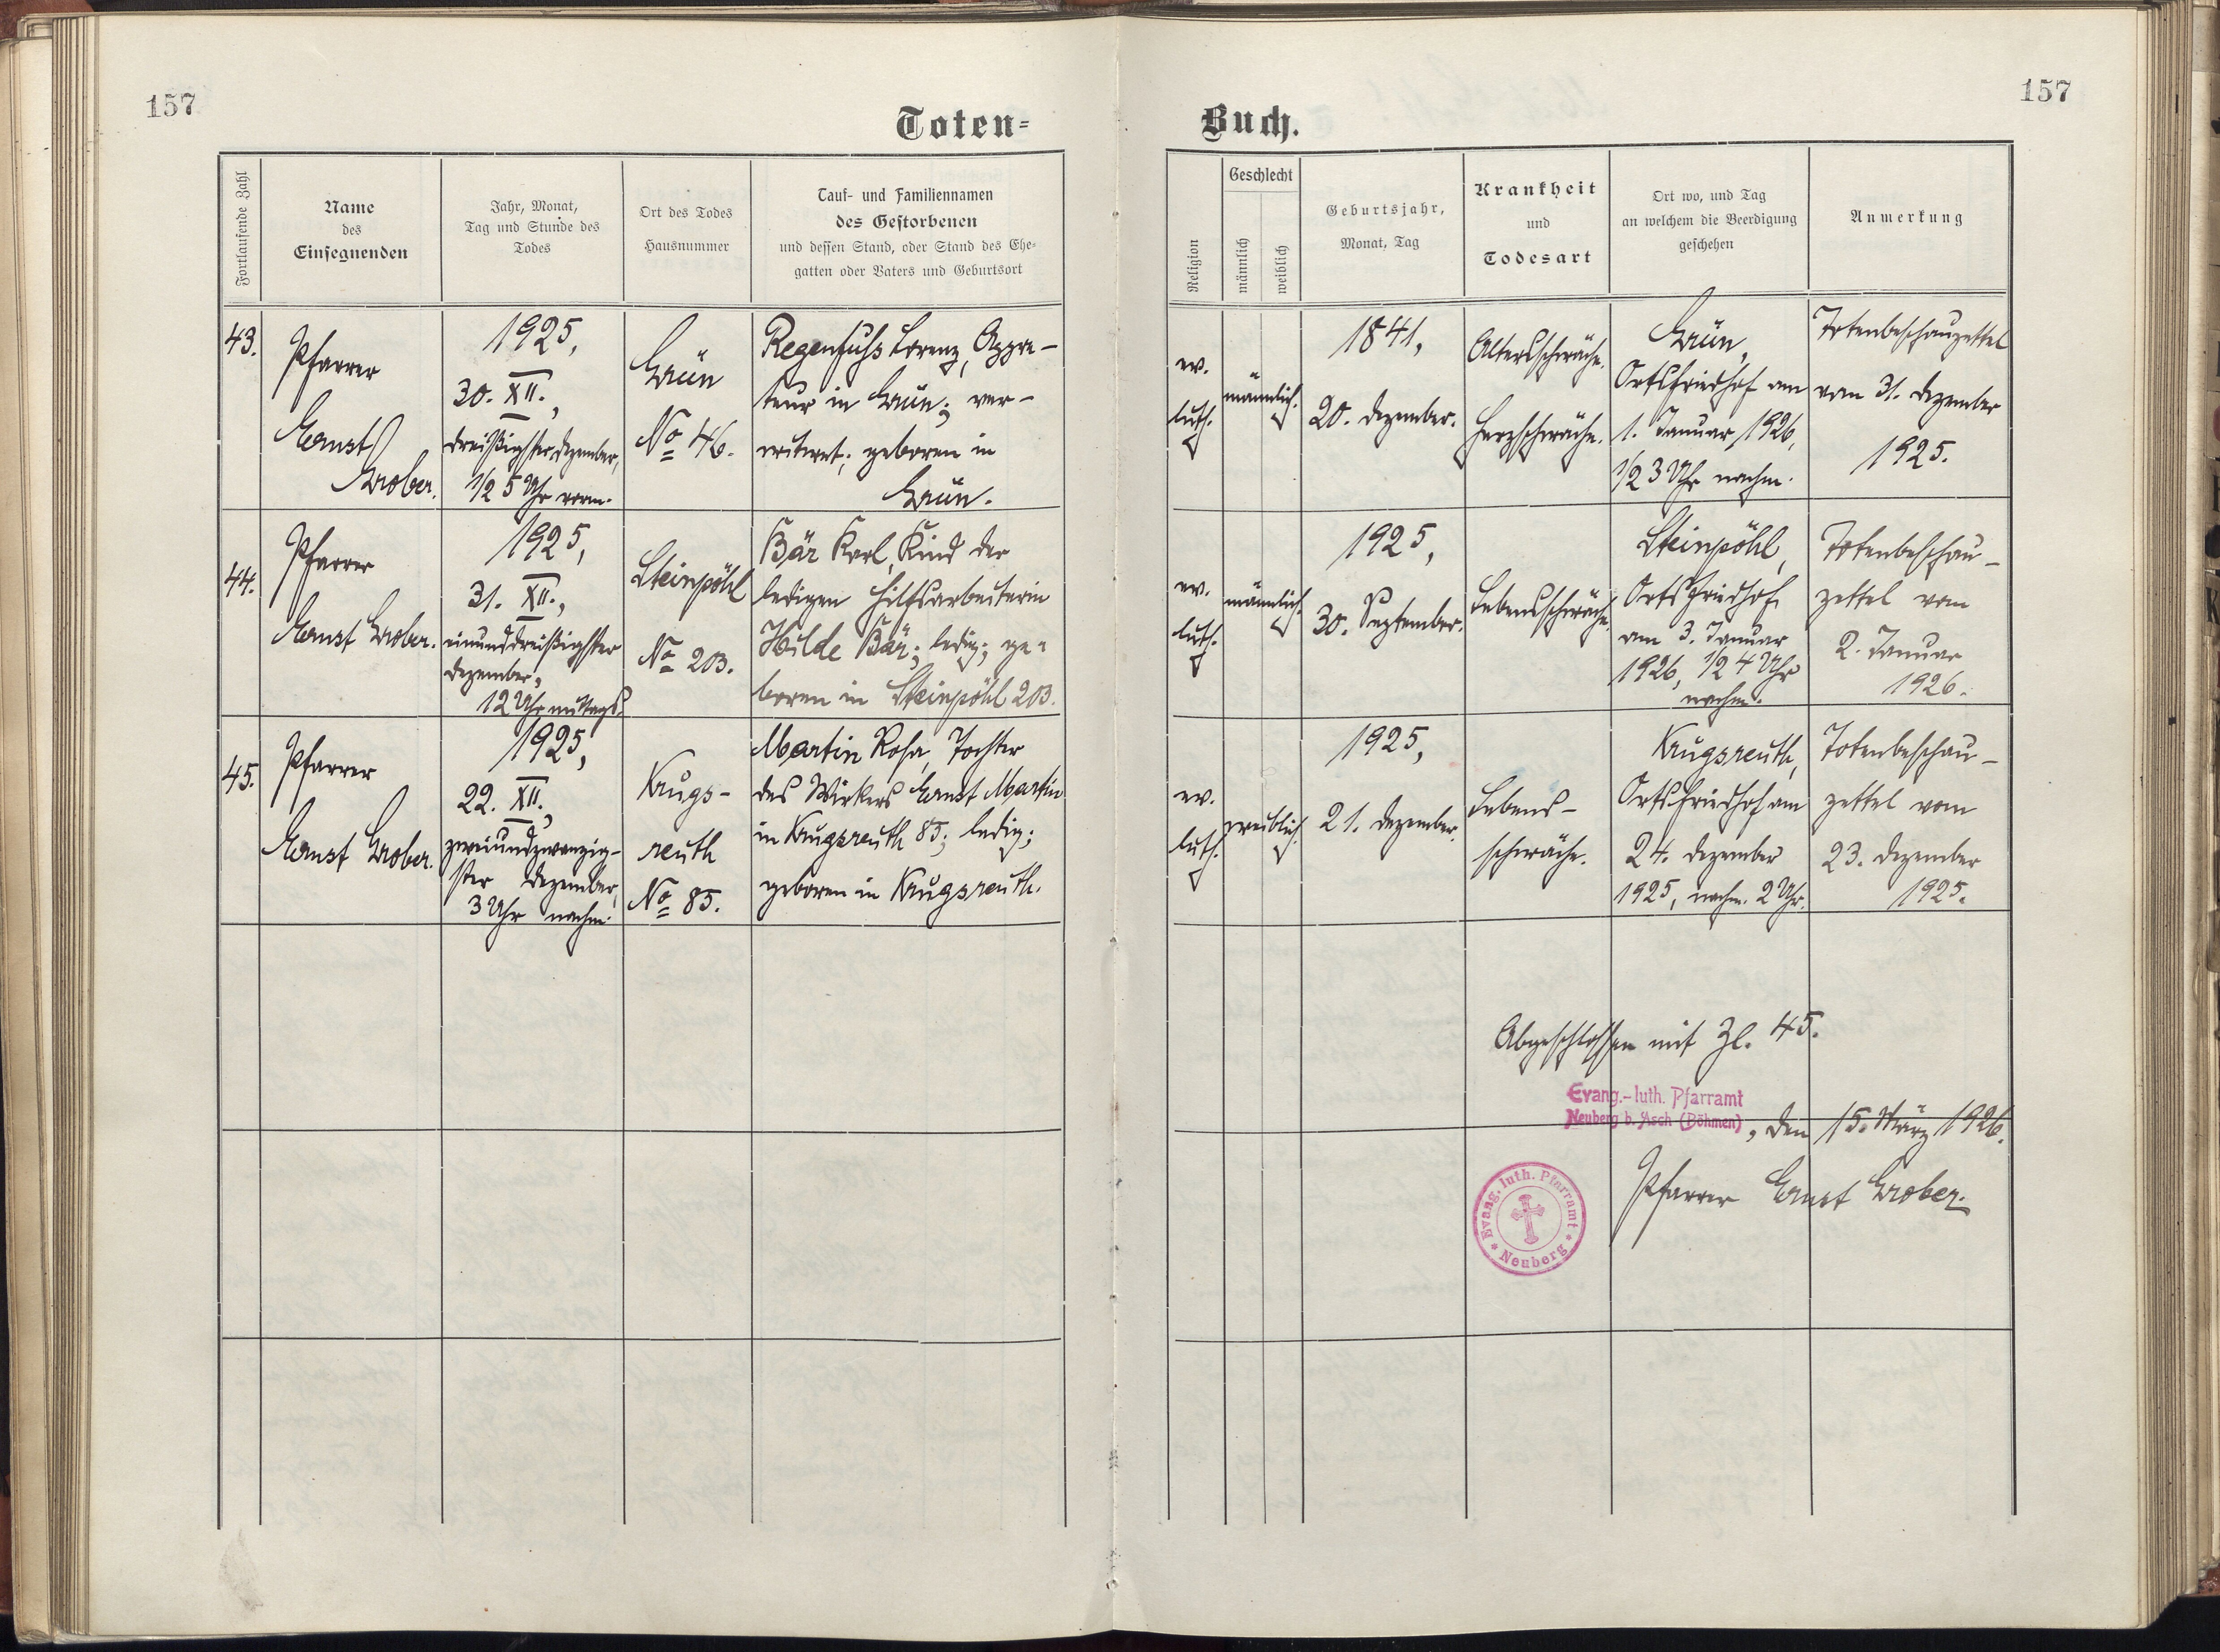 157
157
Toten=
Buch.
Fortlaufende Zahl
Name
des
Einsegnenden
Jahr, Monat,
Tag und Stunde des
Todes
Ort des Todes
Hausnummer
Tauf- und Familiennamen
des Gestorbenen
und dessen Stand, oder Stand des Ehe-
gatten oder Vaters und Geburtsort
Religion
Geschlecht
männlich
weiblich
Geburtsjahr,
Monat, Tag
Krankheit
und
Todesart
Ort wo, und Tag
an welchem die Beerdigung
geschehen
Anmerkung
43.
Pfarrer
Ernst
Grober.
1925,
30. XII.,
dreißigster Dezember,
1/2 5 Uhr vorm.
Grün
No 46.
Regenfuß Lorenz, Appre-
teur in Grün; ver-
witwet; geboren in
Grün.
ev.
luth.
männlich.
1841,
20. Dezember.
Altersschwäche.
Herzschwäche.
Grün,
Ortsfriedhof am
1. Januar 1926,
1/2 3 Uhr nachm.
Totenbeschauzettel
vom 31. Dezember
1925.
44.
Pfarrer
Ernst Grober.
1925,
31. XII.,
einunddreißigster
Dezember,
12 Uhr mittags.
Steinpöhl
No 203.
Bär Karl, Kind der
ledigen Hilfsarbeiterin
Hilde Bär; ledig; ge-
boren in Steinpöhl 203.
ev.
luth.
männlich.
1925,
30. September.
Lebensschwäche.
Steinpöhl,
Ortsfriedhof
am 3. Januar
1926, 1/2 4 Uhr
nachm.
Totenbeschau-
zettel vom
2. Januar
1926.
45.
Pfarrer
Ernst Grober.
1925,
22. XII.,
zweiundzwanzig-
ster Dezember,
3 Uhr nachm.
Krugs-
reuth
No 85.
Martin Rosa, Tochter
des Wirkers Ernst Martin
in Krugsreuth 85; ledig;
geboren in Krugsreuth.
ev.
luth.
weiblich.
1925,
21. Dezember.
Lebens-
schwäche.
Krugsreuth,
Ortsfriedhof am
24. Dezember
1925, nachm. 2 Uhr.
Totenbeschau-
zettel vom
23. Dezember
1925.
Abgeschlossen mit Zl. 45.
Evang.-luth. Pfarramt
Neuberg b. Asch (Böhmen), den 15. März 1926.
Pfarrer Ernst Grober.
Evang. luth. Pfarramt
* Neuberg *